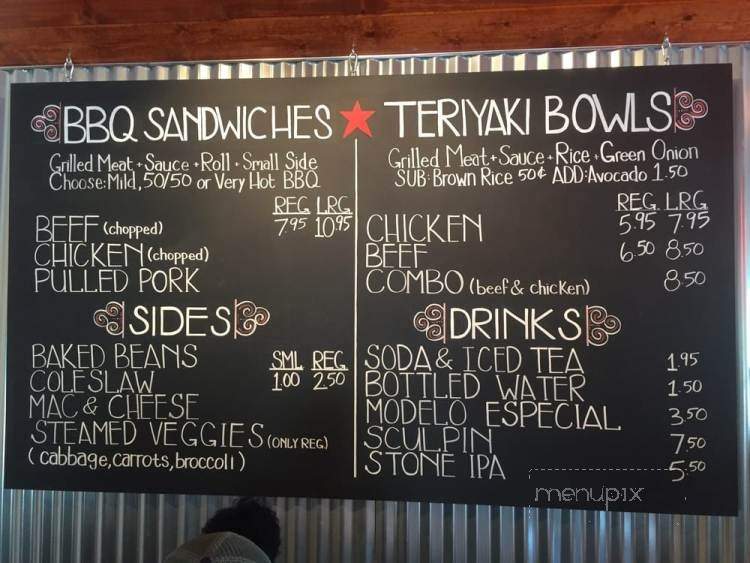 BBQ SANDWICHES
Grilled Meat + Sauce + Roll + Small Side
Choose: Mild, 50/50 or Very Hot BBQ
REG LRG
BEEF (chopped) 7.95 10.95
CHICKEN (chopped)
PULLED PORK
SIDES
SML REG
BAKED BEANS 1.00 2.50
COLESLAW
MAC & CHEESE
STEAMED VEGGIES (ONLY REG)
(cabbage, carrots, broccoli)
TERIYAKI BOWLS
Grilled Meat + Sauce + Rice + Green Onion
SUB: Brown Rice 50¢ ADD: Avocado 1.50
REG LRG
CHICKEN 5.95 7.95
BEEF 6.50 8.50
COMBO (beef & chicken) 8.50
DRINKS
SODA & ICED TEA 1.95
BOTTLED WATER 1.50
MODELO ESPECIAL 3.50
SCULPIN 7.50
STONE IPA 5.50
menupix